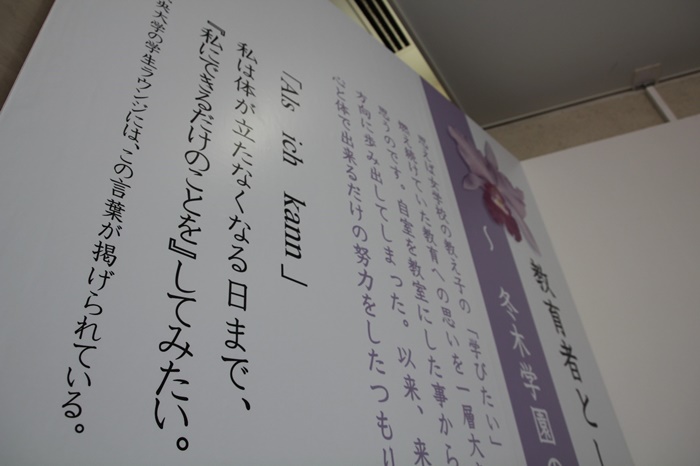 教育者と
～ 冬木学園の
思えば女学校の教え子の「学びたい」
思い続けていた教育への思いを一層大
思うのです。自室を教室にした事から
方向に歩み出してしまった。以来、来
心と体で出来るだけの努力をしたつもり
「Als ich kann」
私は体が立たなくなる日まで、
『私にできるだけのことを』してみたい。
央大学の学生ラウンジには、この言葉が掲げられている。